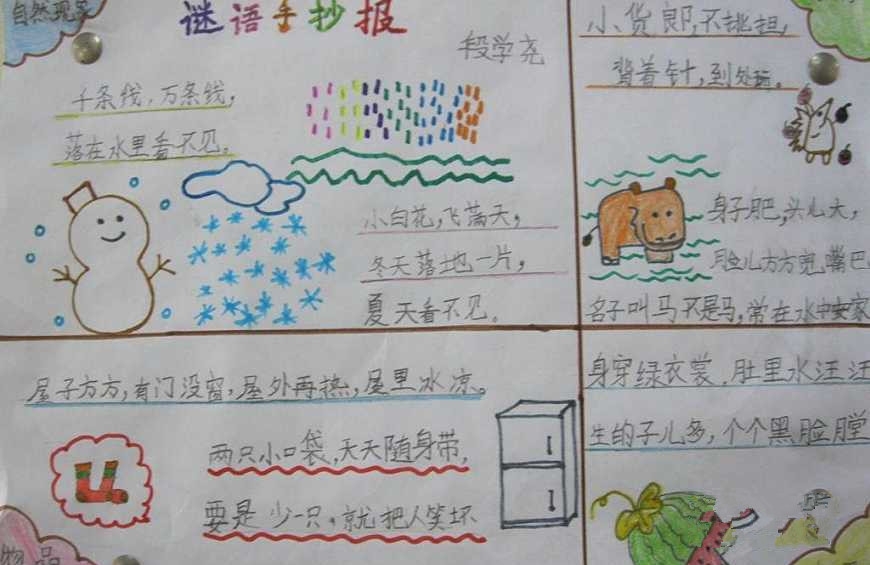 自然现象
谜语手抄报
段学尧
千条线,万条线,
落在水里看不见。
小白花,飞满天,
冬天落地一片,
夏天看不见。
小货郎,不挑担,
背着针,到处跑。
身子肥,头儿大,
脸儿方方宽嘴巴
名子叫马不是马,常在水中安家
屋子方方,有门没窗,屋外再热,屋里冰凉。
两只小口袋,天天随身带,
要是少一只,就把人笑坏
身穿绿衣裳,肚里水汪汪
生的子儿多,个个黑脸膛
物品